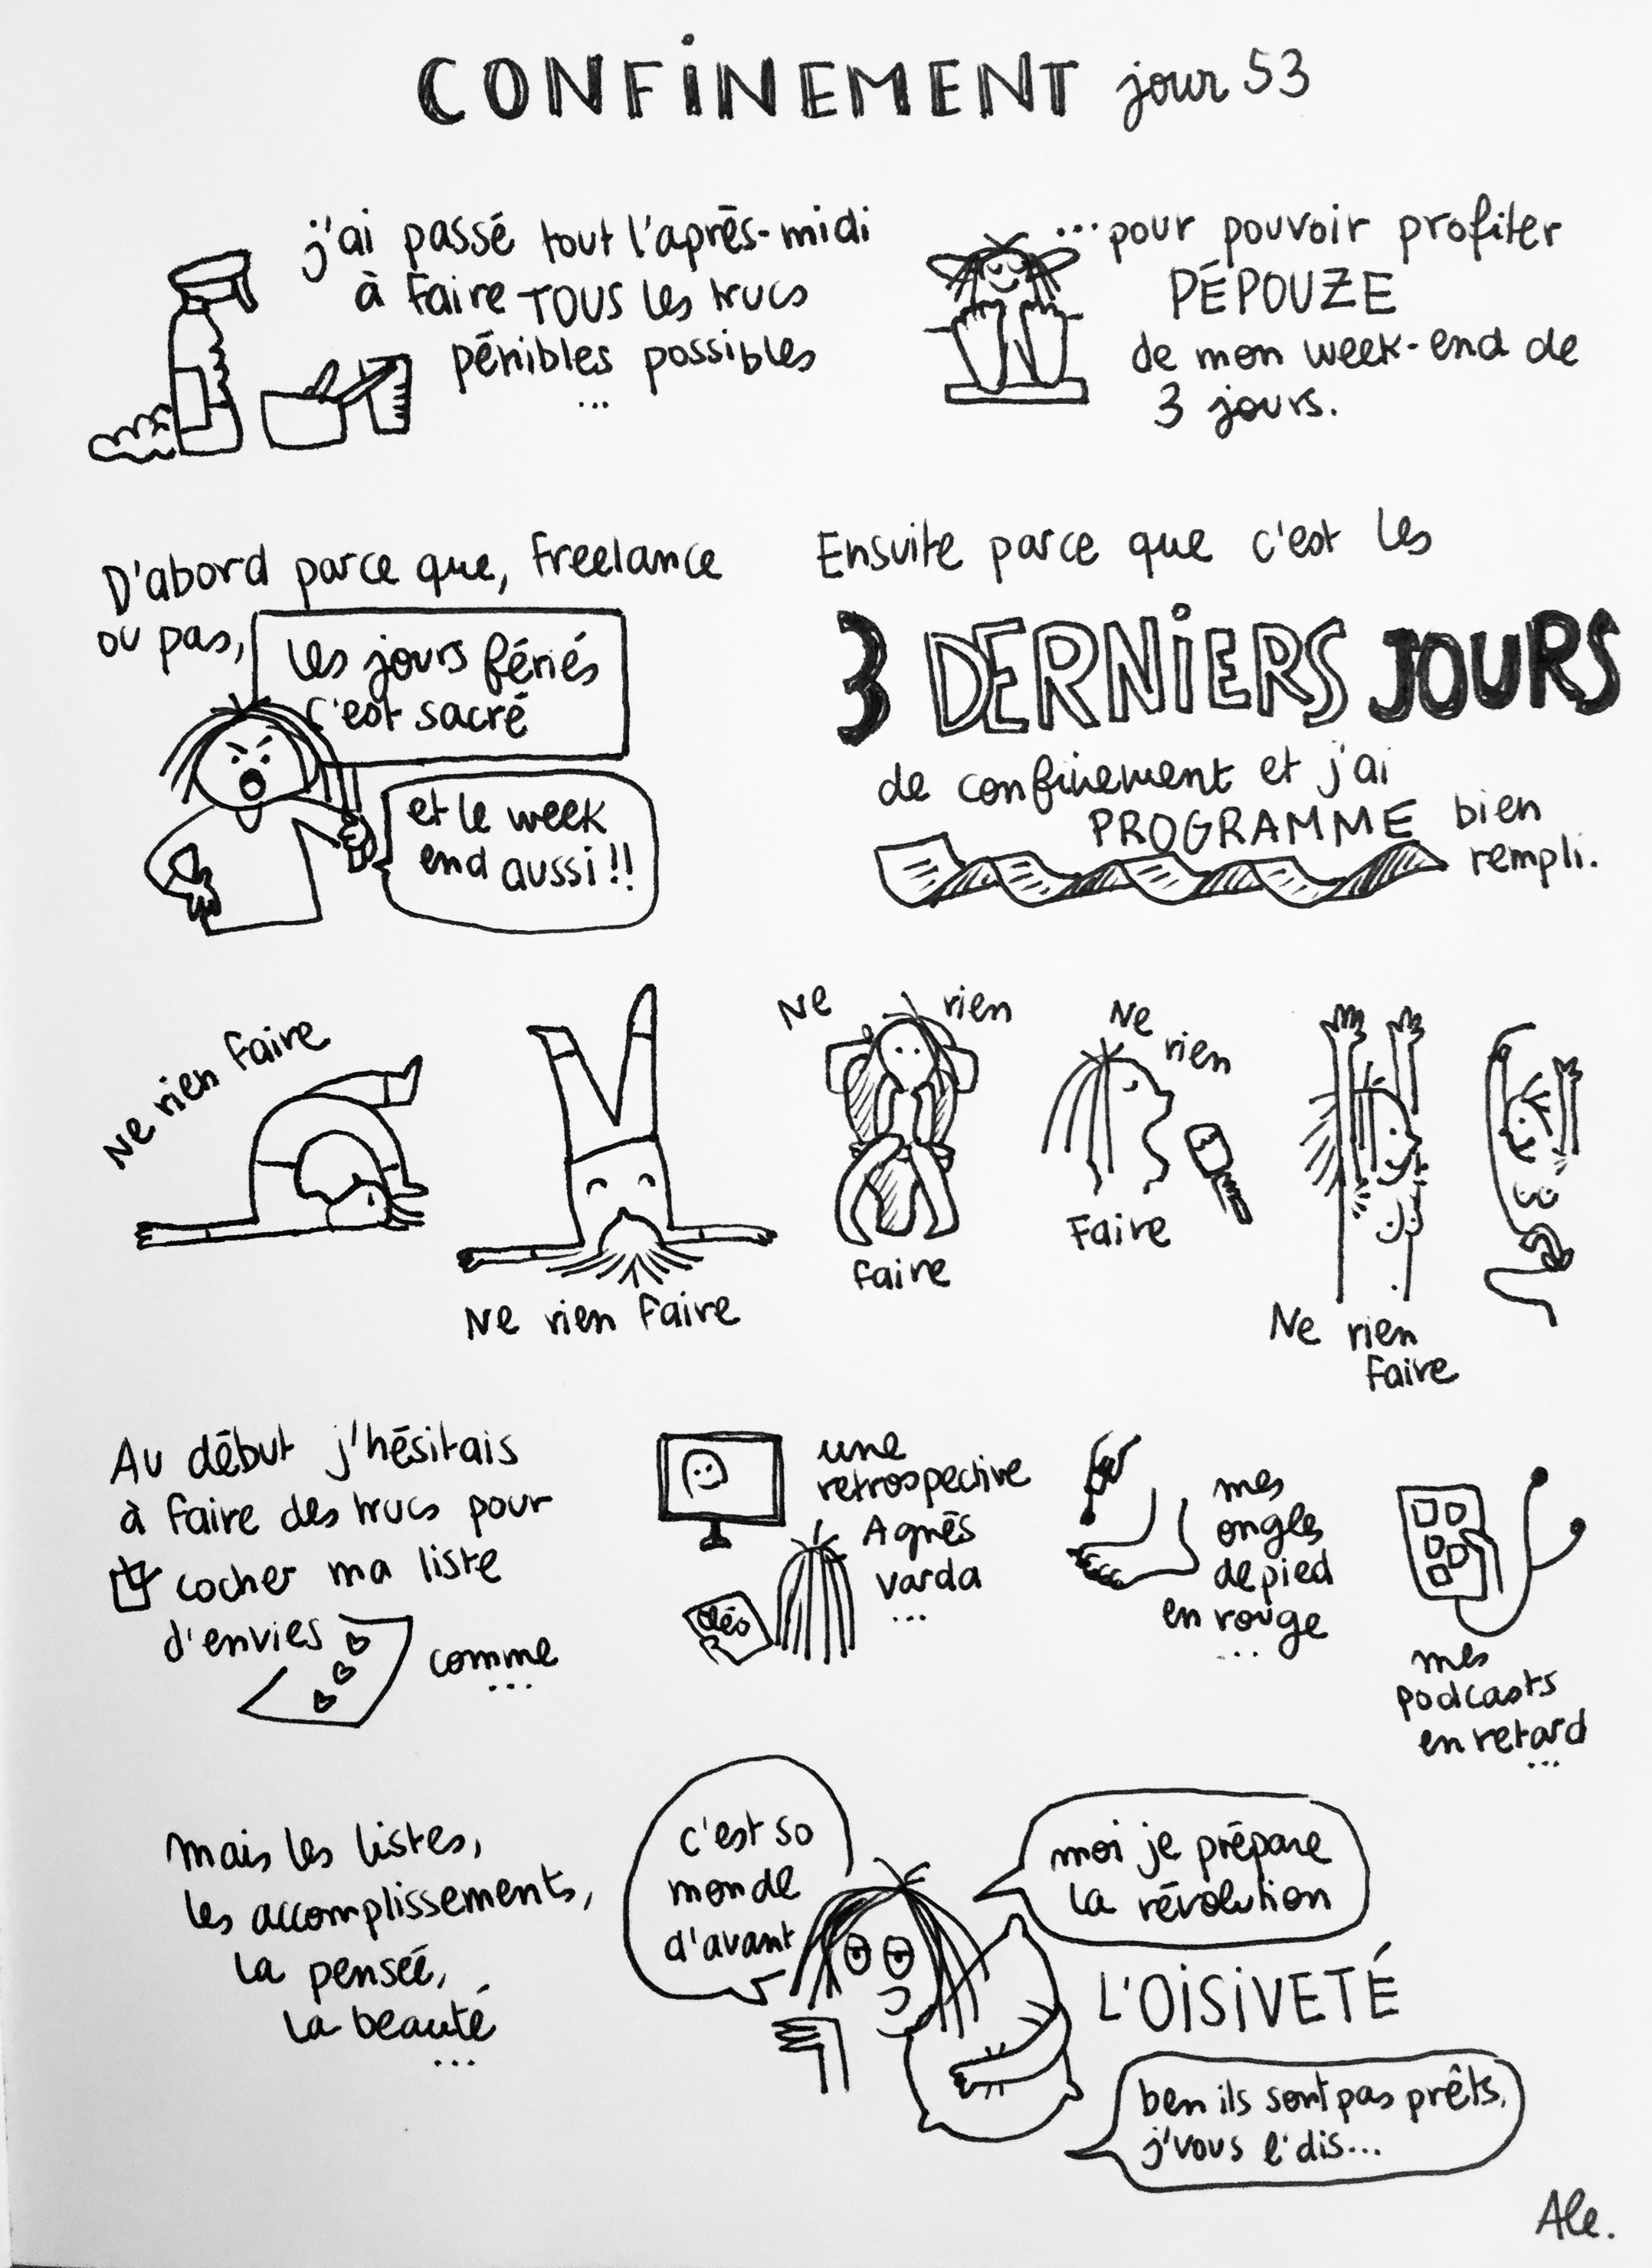 CONFINEMENT jour 53
j'ai passé tout l'après-midi
à faire TOUS les trucs
pénibles possibles
...
...pour pouvoir profiter
PÉPOUZE
de mon week-end de
3 jours.
D'abord parce que, freelance
ou pas,
les jours fériés
c'est sacré
et le week
end aussi !!
Ensuite parce que c'est les
3 DERNIERS JOURS
de confinement et j'ai
PROGRAMME bien
rempli.
Ne rien faire
Ne rien faire
Ne rien
faire
Ne
rien
Faire
Ne rien
faire
Au début j'hésitais
à faire des trucs pour
cocher ma liste
d'envies
comme
...
une
retrospective
Agnès
Varda
...
Cléo
mes
ongles
de pied
en rouge
...
mes
podcasts
en retard
...
Mais les listes,
les accomplissements,
la pensée,
la beauté
...
c'est so
monde
d'avant
moi je prépare
la révolution
L'OISIVETÉ
ben ils sont pas prêts,
j'vous l'dis...
Ale.